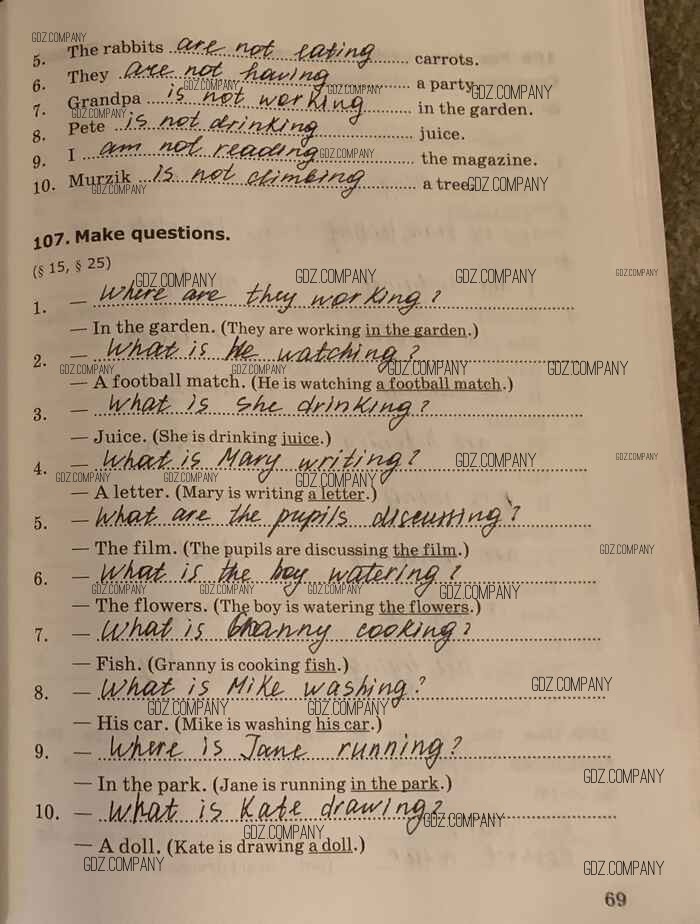 GDZ.COMPANY
5. The rabbits are not eating carrots.
6. They are not having a party. GDZ.COMPANY
GDZ.COMPANY GDZ.COMPANY
7. Grandpa is not working in the garden.
GDZ.COMPANY
8. Pete is not drinking juice.
9. I am not reading the magazine.
GDZ.COMPANY
10. Murzik is not climbing a tree. GDZ.COMPANY
GDZ.COMPANY
107. Make questions.
(§ 15, § 25)
GDZ.COMPANY GDZ.COMPANY GDZ.COMPANY GDZ.COMPANY
1. — Where are they working?
— In the garden. (They are working in the garden.)
2. — What is He watching?
GDZ.COMPANY GDZ.COMPANY GDZ.COMPANY GDZ.COMPANY
— A football match. (He is watching a football match.)
3. — What is she drinking?
— Juice. (She is drinking juice.)
4. — What is Mary writing?
GDZ.COMPANY GDZ.COMPANY
GDZ.COMPANY GDZ.COMPANY GDZ.COMPANY
— A letter. (Mary is writing a letter.)
5. — What are the pupils discussing?
— The film. (The pupils are discussing the film.)
GDZ.COMPANY
6. — What is the boy watering?
GDZ.COMPANY GDZ.COMPANY GDZ.COMPANY GDZ.COMPANY
— The flowers. (The boy is watering the flowers.)
7. — What is Granny cooking?
— Fish. (Granny is cooking fish.)
8. — What is Mike washing?
GDZ.COMPANY
GDZ.COMPANY GDZ.COMPANY
— His car. (Mike is washing his car.)
9. — Where is Jane running?
GDZ.COMPANY
— In the park. (Jane is running in the park.)
10. — What is Kate drawing?
GDZ.COMPANY GDZ.COMPANY
— A doll. (Kate is drawing a doll.)
GDZ.COMPANY GDZ.COMPANY
69